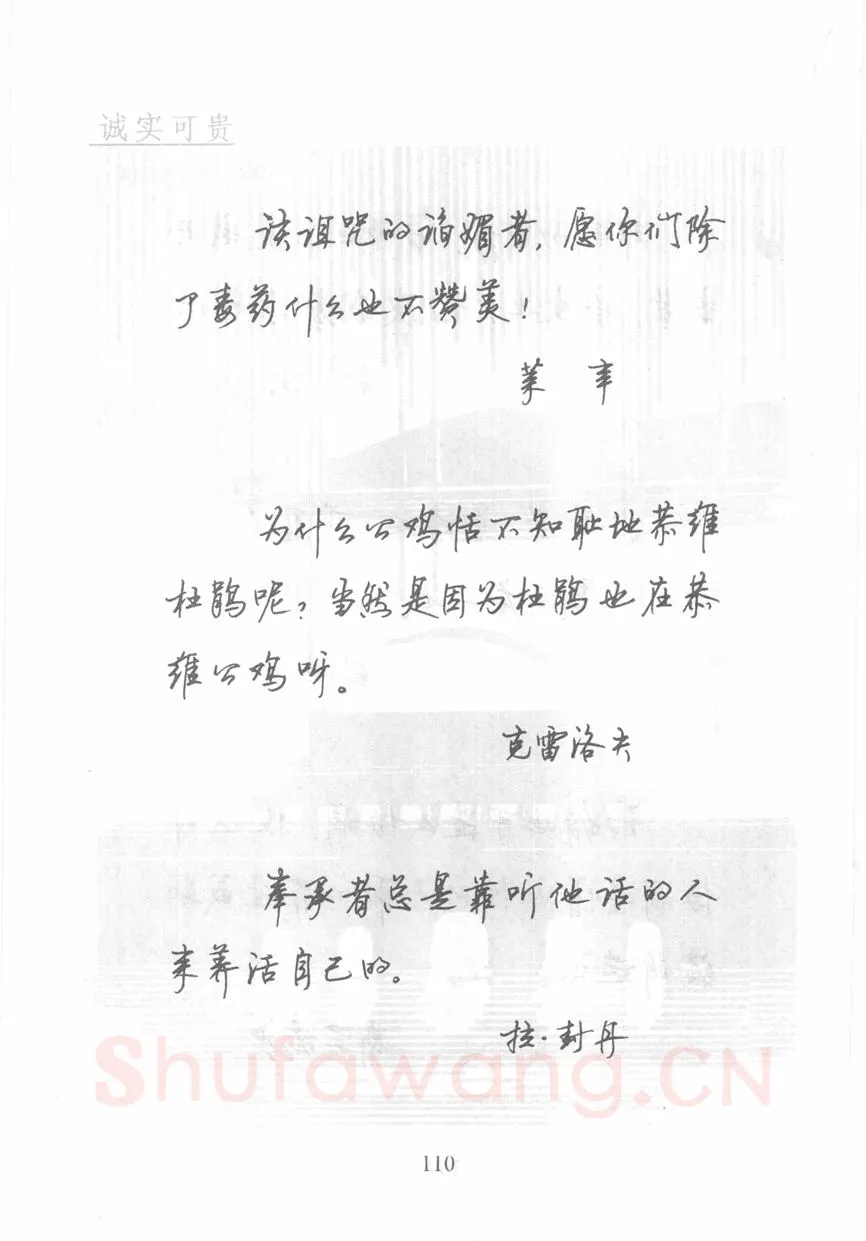 诚实可贵
该诅咒的谄媚者，愿你们除
了毒药什么也不赞美！
莱 辛
为什么公鸡恬不知耻地恭维
杜鹃呢？当然是因为杜鹃也在恭
维公鸡呀。
克雷洛夫
奉承者总是靠听他话的人
来养活自己的。
拉·封丹
Shufawang.CN
110